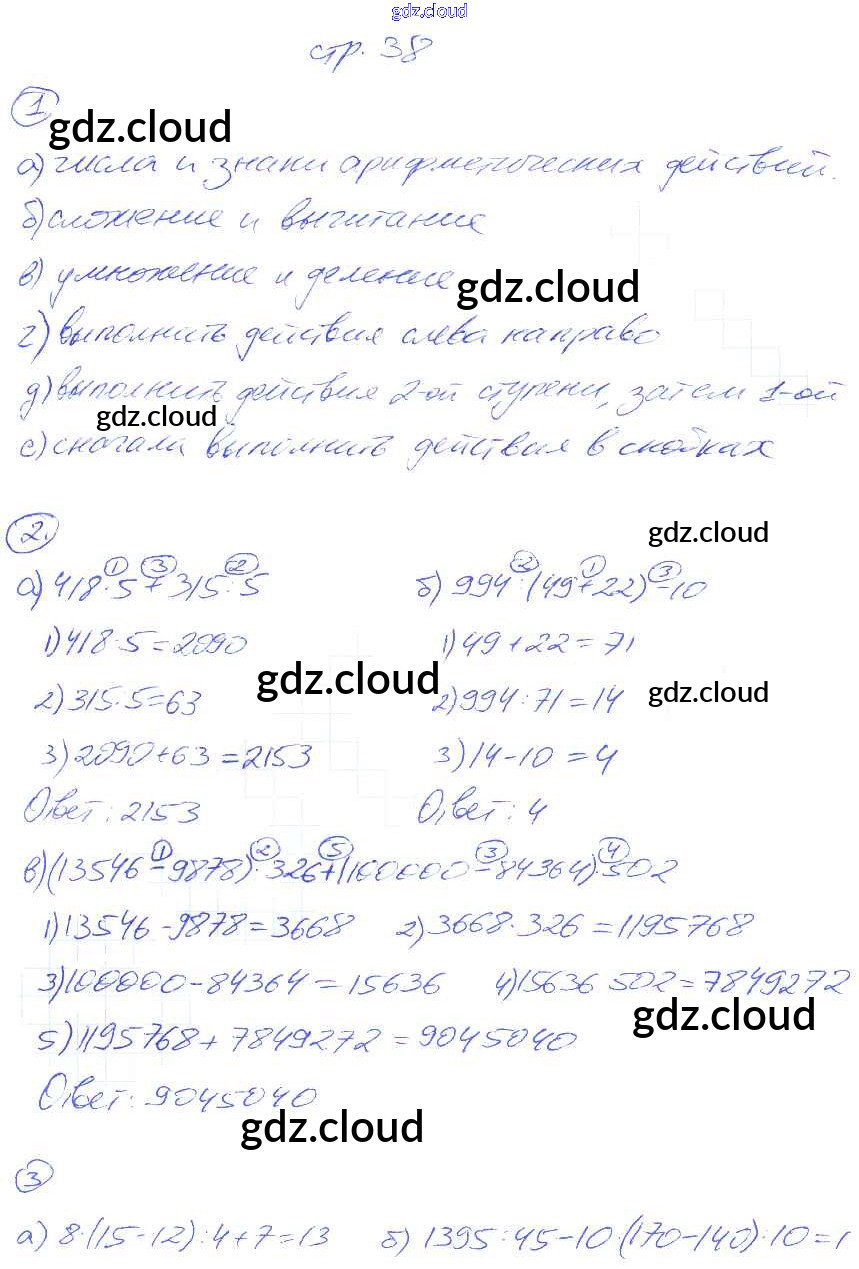 gdz.cloud
стр. 38
1
gdz.cloud
а) числа и знаки арифметических действий.
б) сложение и вычитание
в) умножение и деление
gdz.cloud
г) выполнить действия слева направо
д) выполнить действия 2-ой ступени, затем 1-ой
gdz.cloud
е) сначала выполнить действия в скобках
2.
gdz.cloud
1 3 2
а) 418·5+315:5
2 1 3
б) 994:(49+22)-10
1) 418·5=2090
1) 49+22=71
gdz.cloud
gdz.cloud
2) 315·5=63
2) 994:71=14
3) 2090+63=2153
3) 14-10=4
Ответ: 2153
Ответ: 4
1 2 5 3 4
в) (13546-9878)·326+(100000-84364)·502
1) 13546-9878=3668
2) 3668·326=1195768
3) 100000-84364=15636
4) 15636 502=7849272
gdz.cloud
5) 1195768+7849272=9045040
Ответ: 9045040
gdz.cloud
3
а) 8·(15-12):4+7=13
б) 1395:45-10·(170-140):10=1